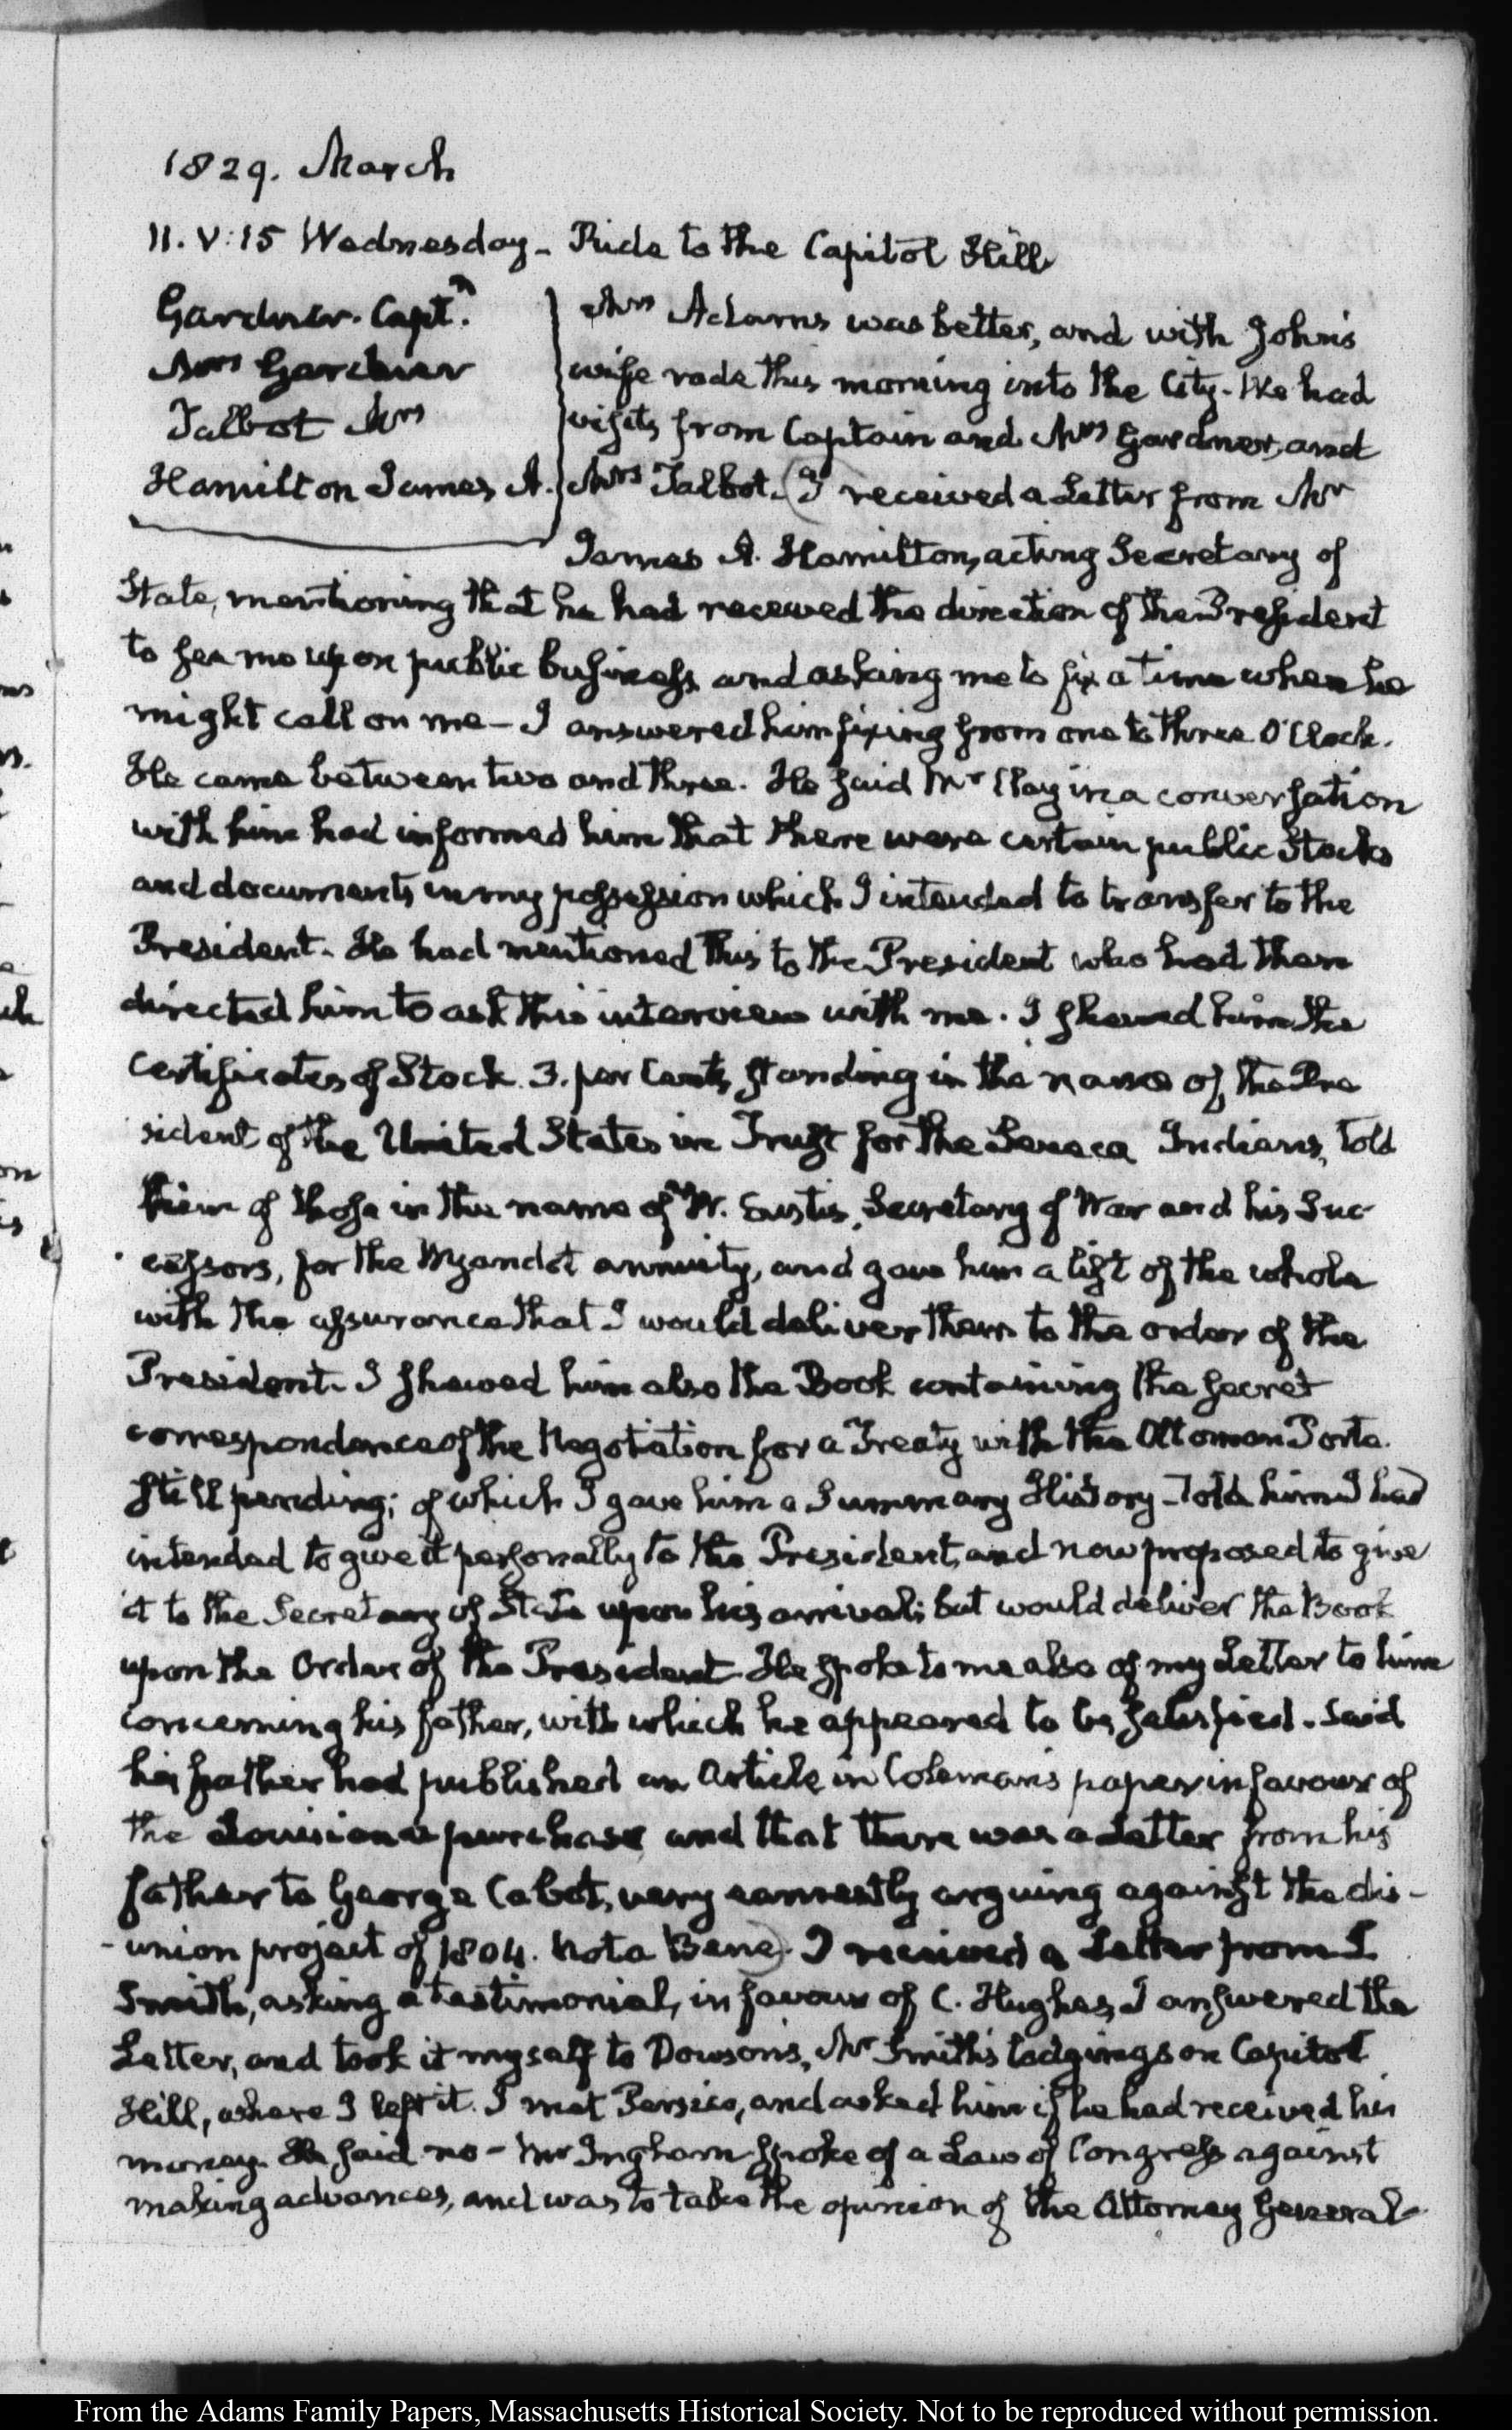 1829. March
11. V:15 Wednesday - Ride to the Capitol Hill
Gardner. Captn.
Mrs Gardner
Talbot Mrs
Hamilton James A.
Mrs Adams was better, and with John's
wife rode this morning into the City. We had
visits from Captain and Mrs Gardner, and
Mrs Talbot. (I received a Letter from Mr
James A. Hamilton, acting Secretary of
State, mentioning that he had received the direction of the President
to see me upon public business and asking me to fix a time when he
might call on me - I answered him fixing from one to three O'Clock.
He came between two and three. He said Mr Clay in a conversation
with him had informed him that there were certain public Stocks
and documents in my possession which I intended to transfer to the
President. He had mentioned this to the President who had then
directed him to ask this interview with me. I shewed him the
Certificates of Stock 3. per Cents, standing in the name of the Pre
sident of the United States in Trust for the Seneca Indians, told
him of those in the name of W. Eustis, Secretary of War and his Suc-
cessors, for the Wyandot annuity, and gave him a list of the whole
with the assurance that I would deliver them to the order of the
President. I shewed him also the Book containing the secret
correspondence of the Negotiation for a Treaty with the Ottoman Porte.
still pending; of which I gave him a Summary History - Told him I had
intended to give it personally to the President, and now proposed to give
it to the Secretary of State upon his arrival; but would deliver the Book
upon the Order of the President. He spoke to me also of my Letter to him
concerning his father, with which he appeared to be satisfied. Said
his father had published an Article in Coleman's paper in favour of
the Louisiana purchase and that there was a Letter from his
father to George Cabot, very earnestly arguing against the dis-
-union project of 1804. Nota Bene). I received a Letter from I
Smith, asking a testimonial, in favour of C. Hughes, I answered the
Letter, and took it myself to Dowson's, Mr Smith's lodgings on Capitol
Hill, where I left it. I met Persico, and asked him if he had received his
money. He said no - Mr Ingham spoke of a Law of Congress against
making advances, and was to take the opinion of the Attorney General-
From the Adams Family Papers, Massachusetts Historical Society. Not to be reproduced without permission.